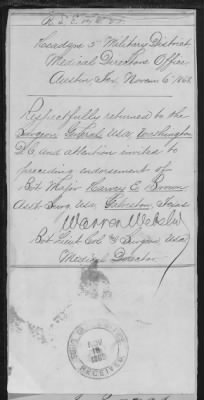 Headqrs 5th Military District
Medical Directors Office
Austin, Tex, Novem 6th 186
Respectfully returned to the
Surgeon General USA Washington
D.C. and attention invited to
preceding endorsement of
Bvt Major Harvey E. Brown
Asst Surg. USA. Galveston, Texas
Warren Webster
Bvt Lieut Col & Surgeon USA
Medical Director
NOV
18
RECEIVED